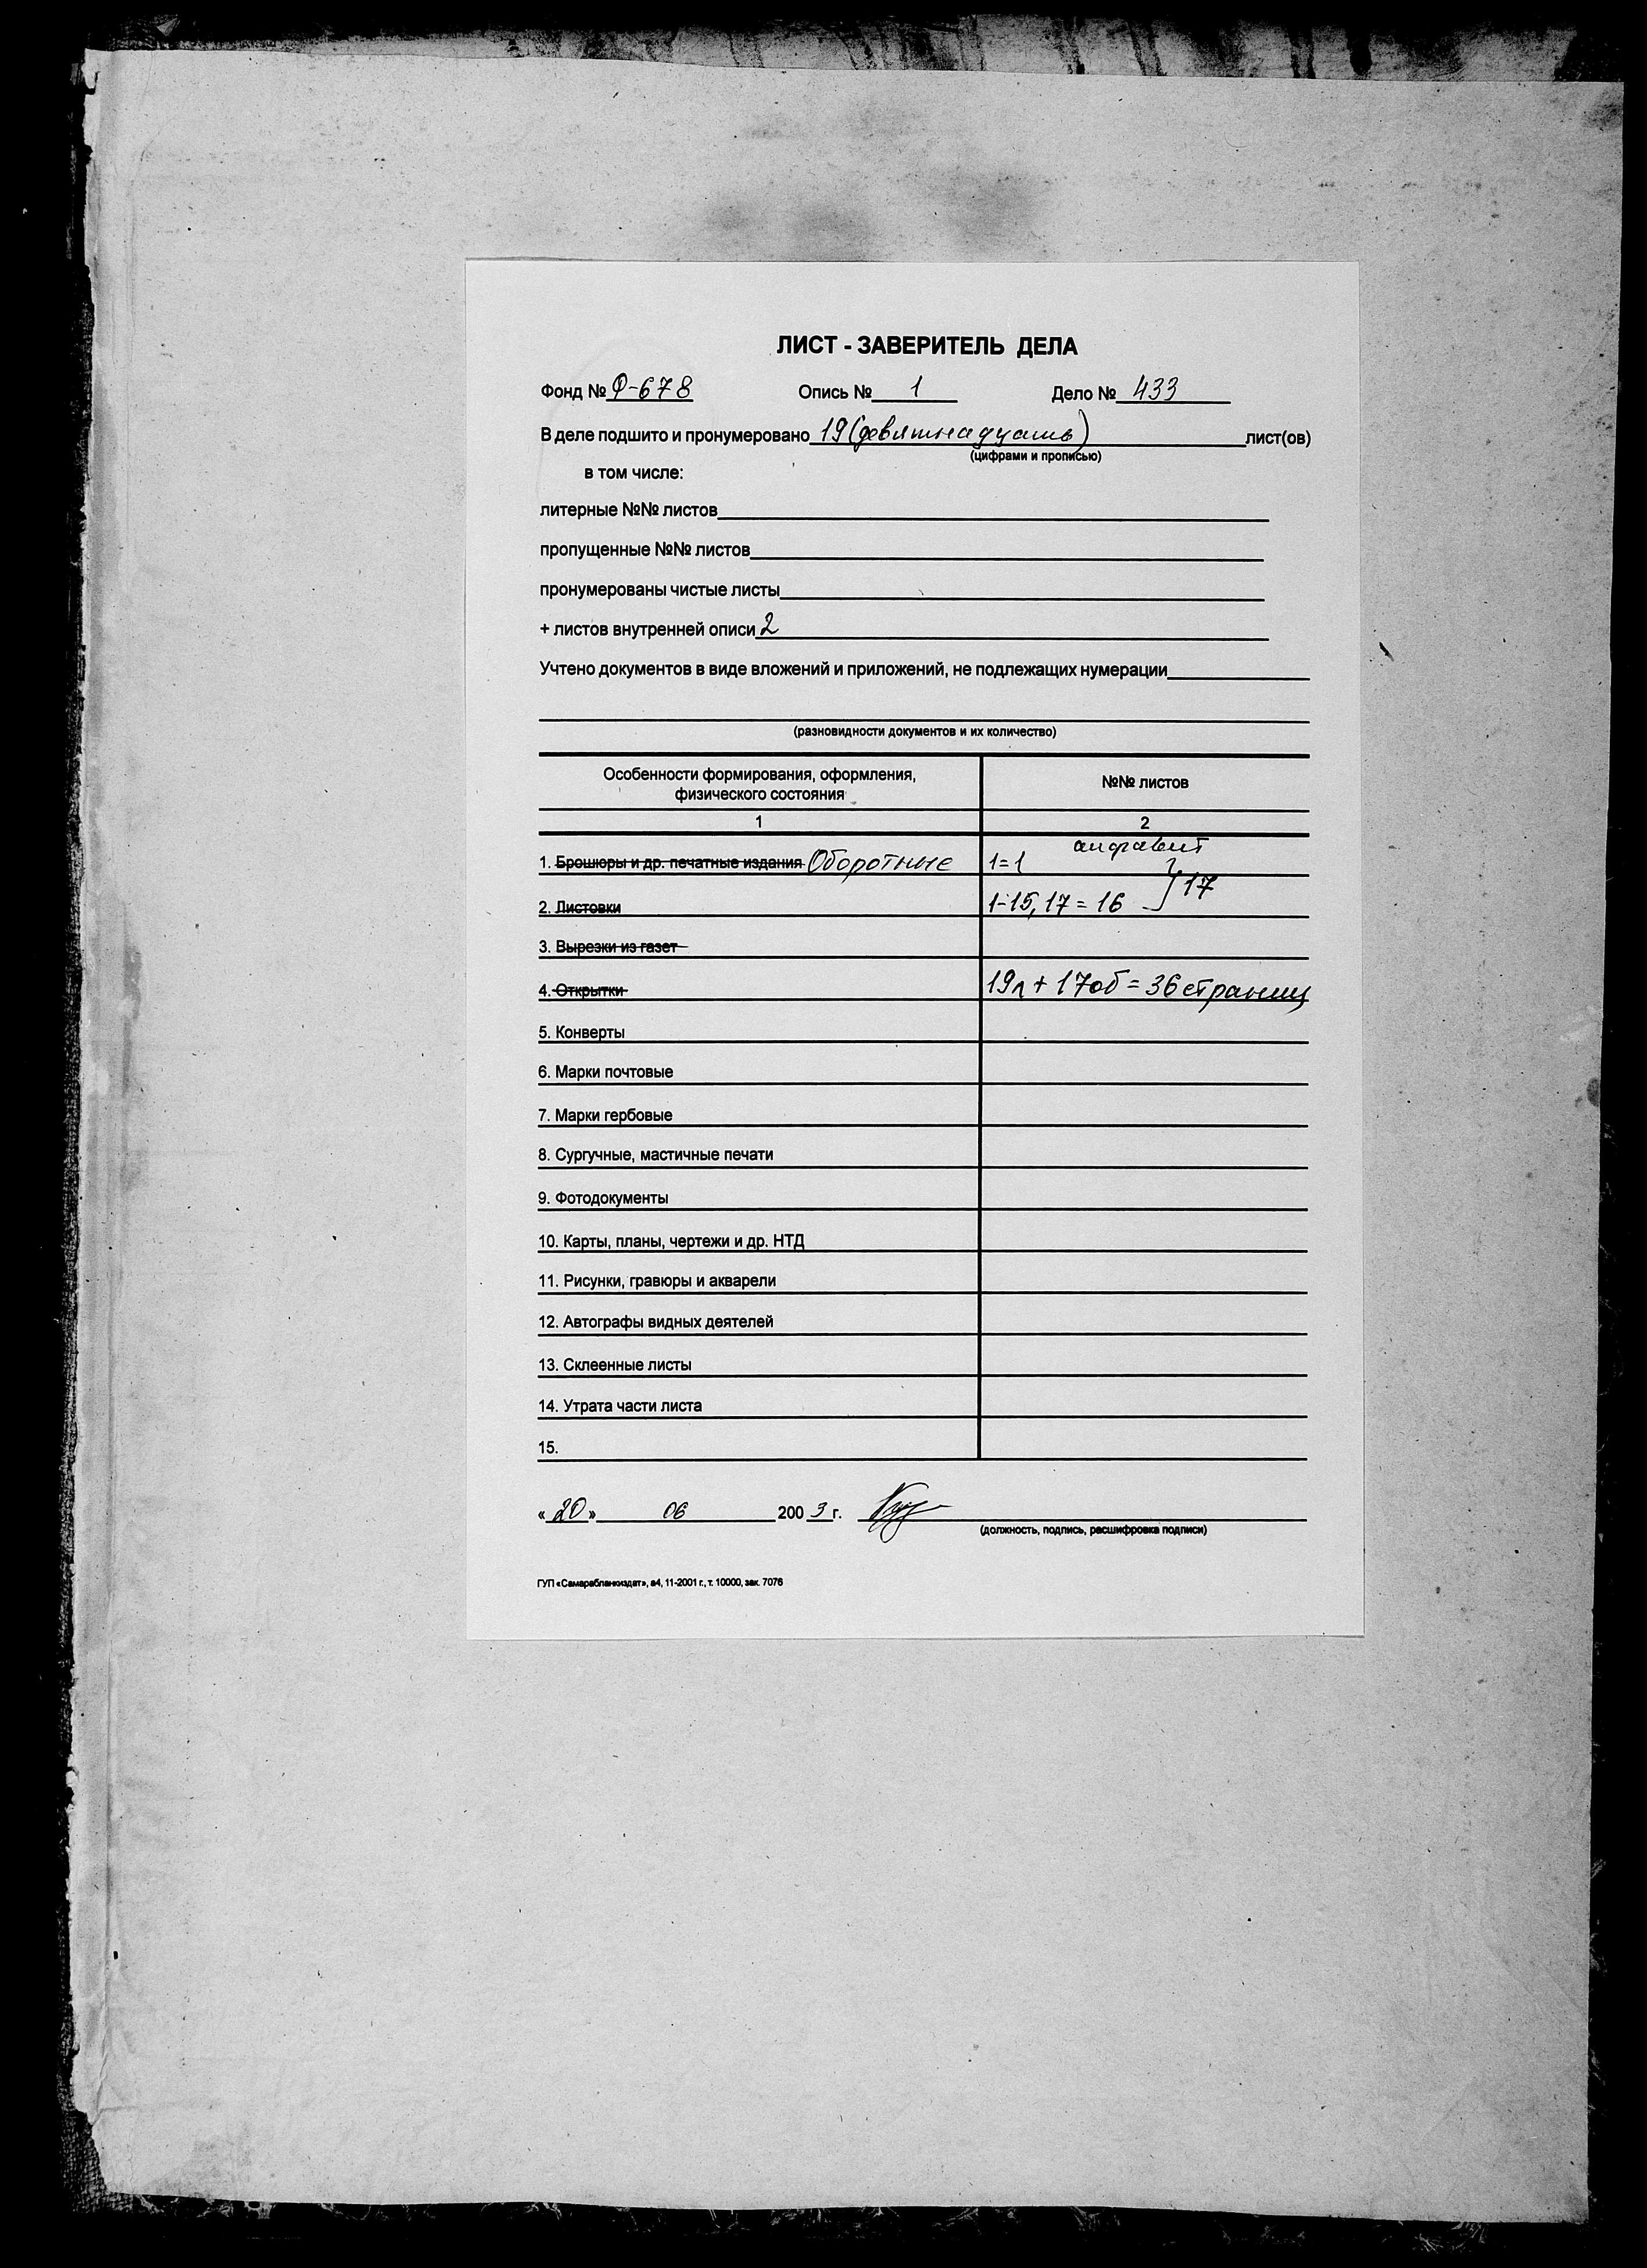 ЛИСТ - ЗАВЕРИТЕЛЬ ДЕЛА
Фонд № Ф-678 Опись № 1 Дело № 433
В деле подшито и пронумеровано 19 (девятнадцать) лист(ов)
(цифрами и прописью)
в том числе:
литерные №№ листов
пропущенные №№ листов
пронумерованы чистые листы
+ листов внутренней описи 2
Учтено документов в виде вложений и приложений, не подлежащих нумерации
(разновидности документов и их количество)
Особенности формирования, оформления, физического состояния №№ листов
1 2
алфавит
1. Брошюры и др. печатные издания Оборотные 1=1
2. Листовки 1-15, 17 = 16 } 17
3. Вырезки из газет
4. Открытки 19л + 17об = 36 страниц
5. Конверты
6. Марки почтовые
7. Марки гербовые
8. Сургучные, мастичные печати
9. Фотодокументы
10. Карты, планы, чертежи и др. НТД
11. Рисунки, гравюры и акварели
12. Автографы видных деятелей
13. Склеенные листы
14. Утрата части листа
15.
« 20 » 06 200 3 г.
(должность, подпись, расшифровка подписи)
ГУП «Самарабланкиздат», а4, 11-2001 г., т. 10000, зак. 7076